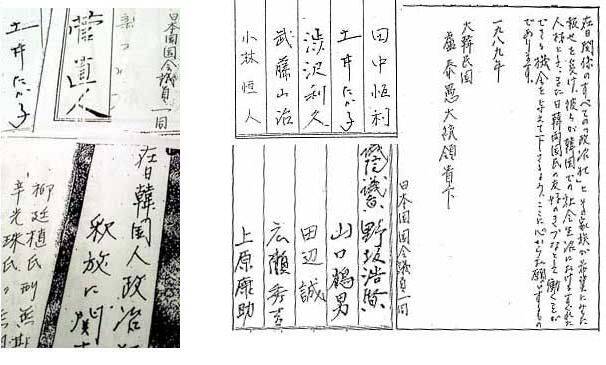 在日関係のすべての「政治犯」とその家族が希望にみちた
報せを受け、彼らが韓国での社会生活におけるすぐれた
人材として、また日韓両国民の友好のきずなとして働くことが
できる機会を与えて下さるよう、ここに心からお願いするもの
であります。
一九八九年
大韓民国
盧泰愚大統領貴下
日本国国会議員一同
田中恒利
土井たか子
渋沢利久
武藤山治
小林恒人
野坂浩賢
山口鶴男
田辺誠
広瀬秀吉
上原康助
日本国国会議員一同
菅直人
土井たか子
在日韓国人政治
釈放に関
柳廷植氏
辛光洙氏